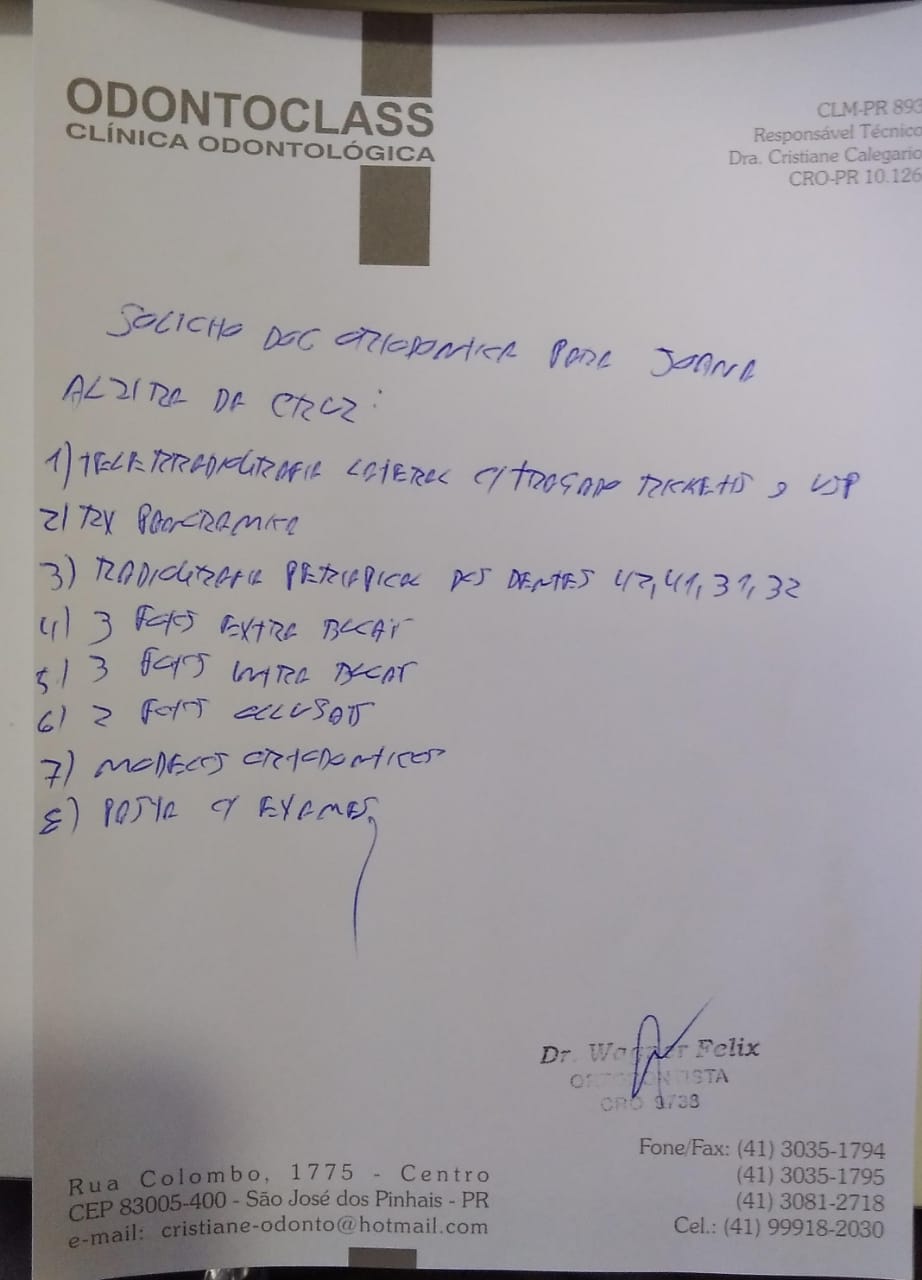 ODONTOCLASS
CLÍNICA ODONTOLÓGICA
CLM-PR 893
Responsável Técnico
Dra. Cristiane Calegario
CRO-PR 10.126
SOLICITO DOC ORTODONTICA PARA JOANA
ALZIRA DA CRUZ:
1) TELERRADIOGRAFIA LATERAL C/ TRAÇADO RICKETTS e USP
2) RX PANORAMICA
3) RADIOGRAFIA PERIAPICAL DOS DENTES 42,41,31,32
4) 3 FOTOS EXTRA BUCAIS
5) 3 FOTOS INTRA BUCAIS
6) 2 FOTOS OCLUSAIS
7) MODELOS ORTODONTICOS
8) PASTA C/ EXAMES
Dr. Wagner Felix
ORTODONTISTA
CRO 9738
Rua Colombo, 1775 - Centro
CEP 83005-400 - São José dos Pinhais - PR
e-mail: cristiane-odonto@hotmail.com
Fone/Fax: (41) 3035-1794
(41) 3035-1795
(41) 3081-2718
Cel.: (41) 99918-2030